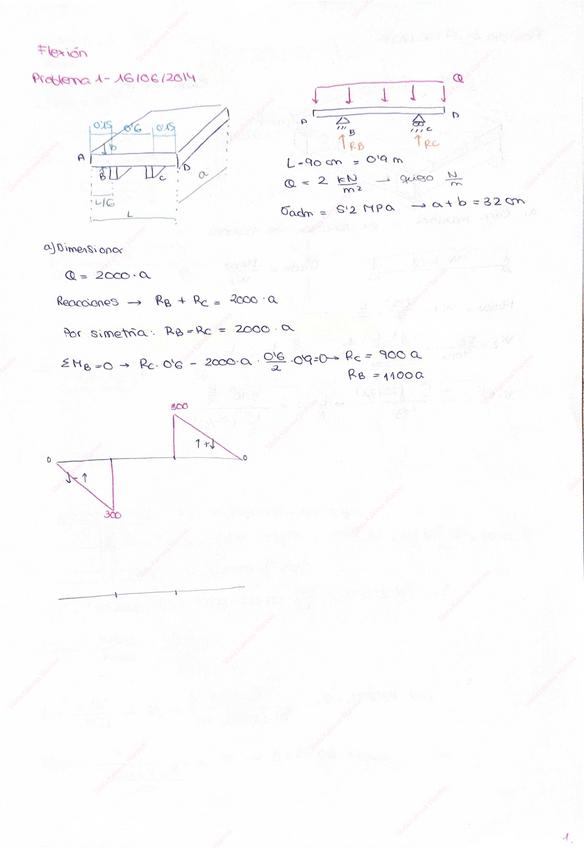 Flexión
Problema 1 - 16/06/2014
0'15 0'6 0'15
b
A
B C D
a
L/6
L
Q
A B C D
RB RC
L = 90 cm = 0'9 m
Q = 2 kN/m² → quiso N/m
σadm = 5'2 MPa → a + b = 32 cm
a) Dimensiona
Q = 2000 · a
Reacciones → RB + RC = 2000 · a
Por simetría: RB = RC = 2000 · a
ΣMB = 0 → RC · 0'6 - 2000 · a · 0'6/2 · 0'9 = 0 → RC = 900 a
RB = 1100 a
300
0 ↓-↑ ↑+↓ 0
300
1